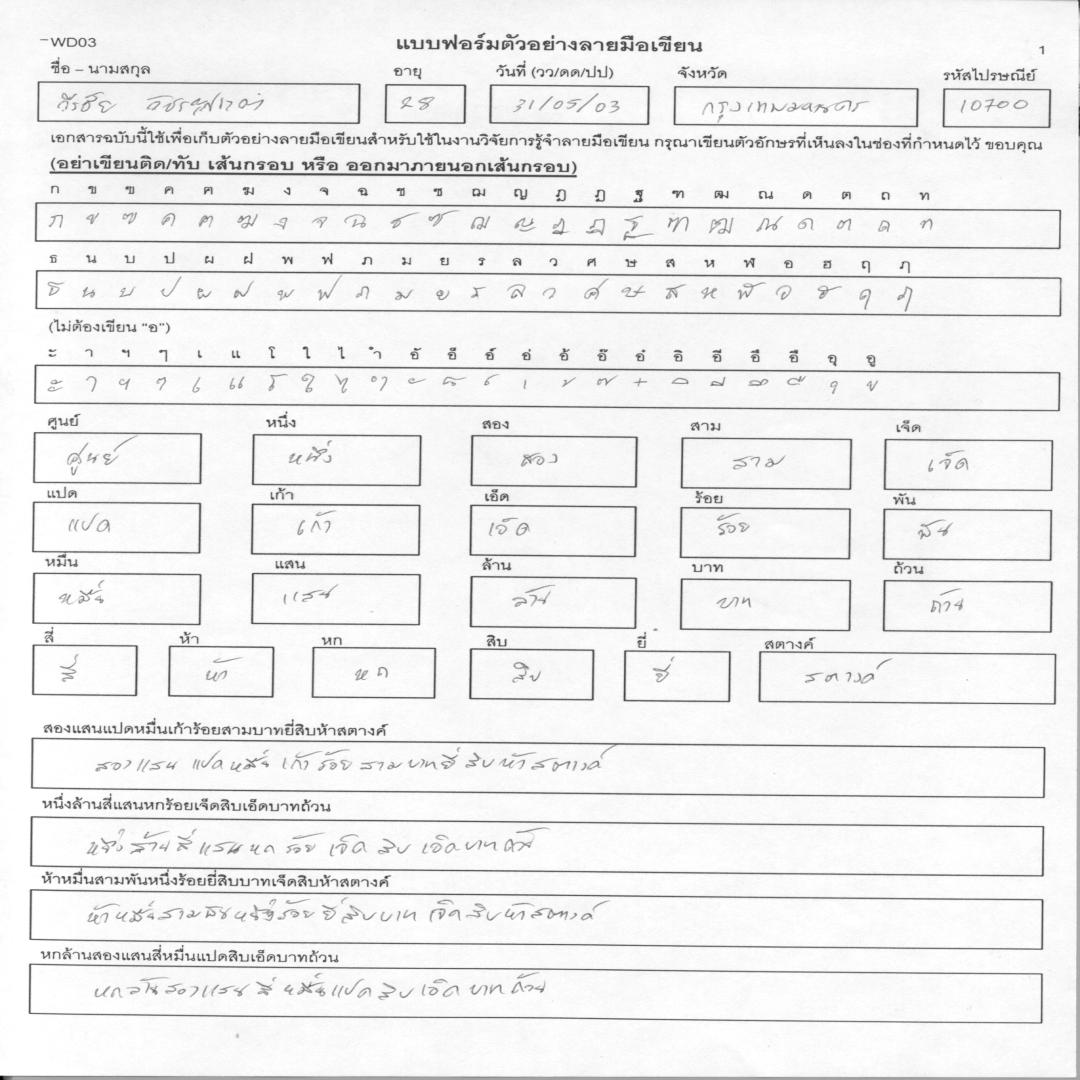 WD03
แบบฟอร์มตัวอย่างลายมือเขียน
1
ชื่อ – นามสกุล อายุ วันที่ (วว/ดด/ปป) จังหวัด รหัสไปรษณีย์
28 31/05/03 กรุงเทพมหานคร 10700
เอกสารฉบับนี้ใช้เพื่อเก็บตัวอย่างลายมือเขียนสำหรับใช้ในงานวิจัยการรู้จำลายมือเขียน กรุณาเขียนตัวอักษรที่เห็นลงในช่องที่กำหนดไว้ ขอบคุณ
(อย่าเขียนติด/ทับ เส้นกรอบ หรือ ออกมาภายนอกเส้นกรอบ)
ก ข ฃ ค ฅ ฆ ง จ ฉ ช ซ ฌ ญ ฎ ฏ ฐ ฑ ฒ ณ ด ต ถ ท
ก ข ฃ ค ฅ ฆ ง จ ฉ ช ซ ฌ ญ ฎ ฏ ฐ ฑ ฒ ณ ด ต ถ ท
ธ น บ ป ผ ฝ พ ฟ ภ ม ย ร ล ว ศ ษ ส ห ฬ อ ฮ ฤ ฦ
ธ น บ ป ผ ฝ พ ฟ ภ ม ย ร ล ว ศ ษ ส ห ฬ อ ฮ ฤ ฦ
(ไม่ต้องเขียน “อ”)
ะ า ฯ ๆ เ แ โ ใ ไ ำ อั อ็ อ์ อ่ อ้ อ๊ อํ อิ อี อึ อื อุ อู
ะ า ฯ ๆ เ แ โ ใ ไ ำ ั ็ ์ ่ ้ ๊ ๋ ิ ี ึ ื ุ ู
ศูนย์ หนึ่ง สอง สาม เจ็ด
ศูนย์ หนึ่ง สอง สาม เจ็ด
แปด เก้า เอ็ด ร้อย พัน
แปด เก้า เอ็ด ร้อย พัน
หมื่น แสน ล้าน บาท ถ้วน
หมื่น แสน ล้าน บาท ถ้วน
สี่ ห้า หก สิบ ยี่ สตางค์
สี่ ห้า หก สิบ ยี่ สตางค์
สองแสนแปดหมื่นเก้าร้อยสามบาทยี่สิบห้าสตางค์
สองแสน แปดหมื่น เก้าร้อย สามบาทยี่ สิบห้าสตางค์
หนึ่งล้านสี่แสนหกร้อยเจ็ดสิบเอ็ดบาทถ้วน
หนึ่งล้าน สี่ แสน หก ร้อย เจ็ด สิบ เอ็ดบาทถ้วน
ห้าหมื่นสามพันหนึ่งร้อยยี่สิบบาทเจ็ดสิบห้าสตางค์
ห้าหมื่นสามพันหนึ่งร้อย ยี่สิบบาท เจ็ดสิบห้าสตางค์
หกล้านสองแสนสี่หมื่นแปดสิบเอ็ดบาทถ้วน
หกล้านสองแสน สี่ หมื่นแปด สิบ เอ็ด บาท ถ้วน